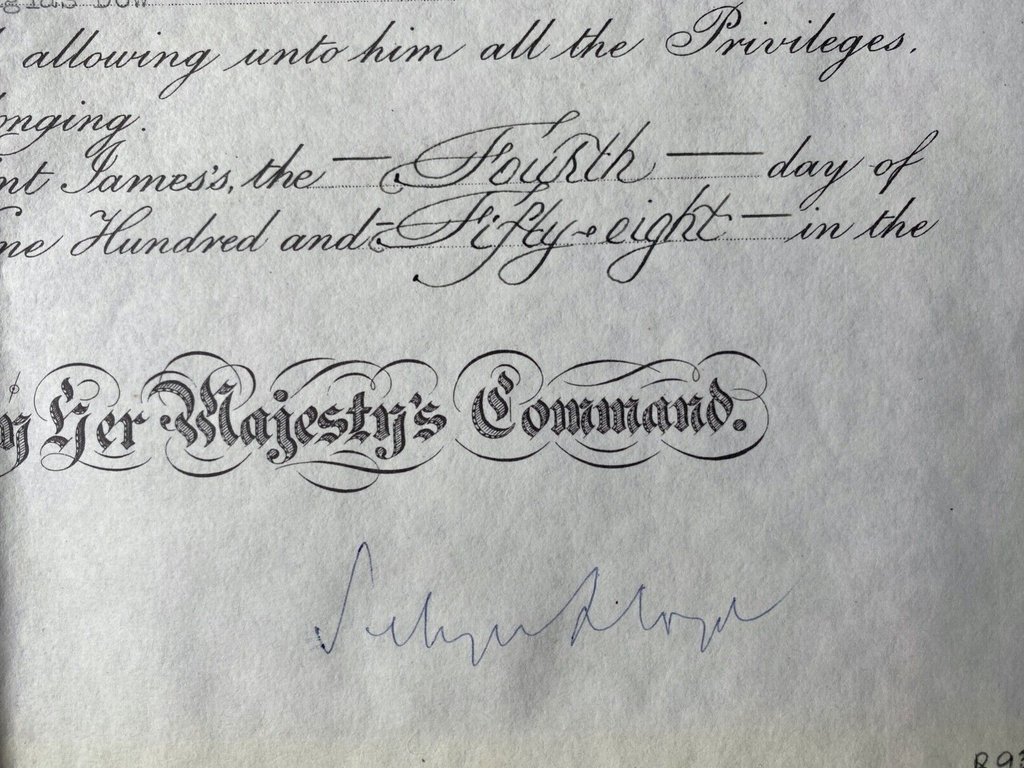 allowing unto him all the Privileges.
onging.
nt James's, the — Fourth — day of
ne Hundred and Fifty-eight — in the
y Her Majesty's Command.
Selwyn Lloyd